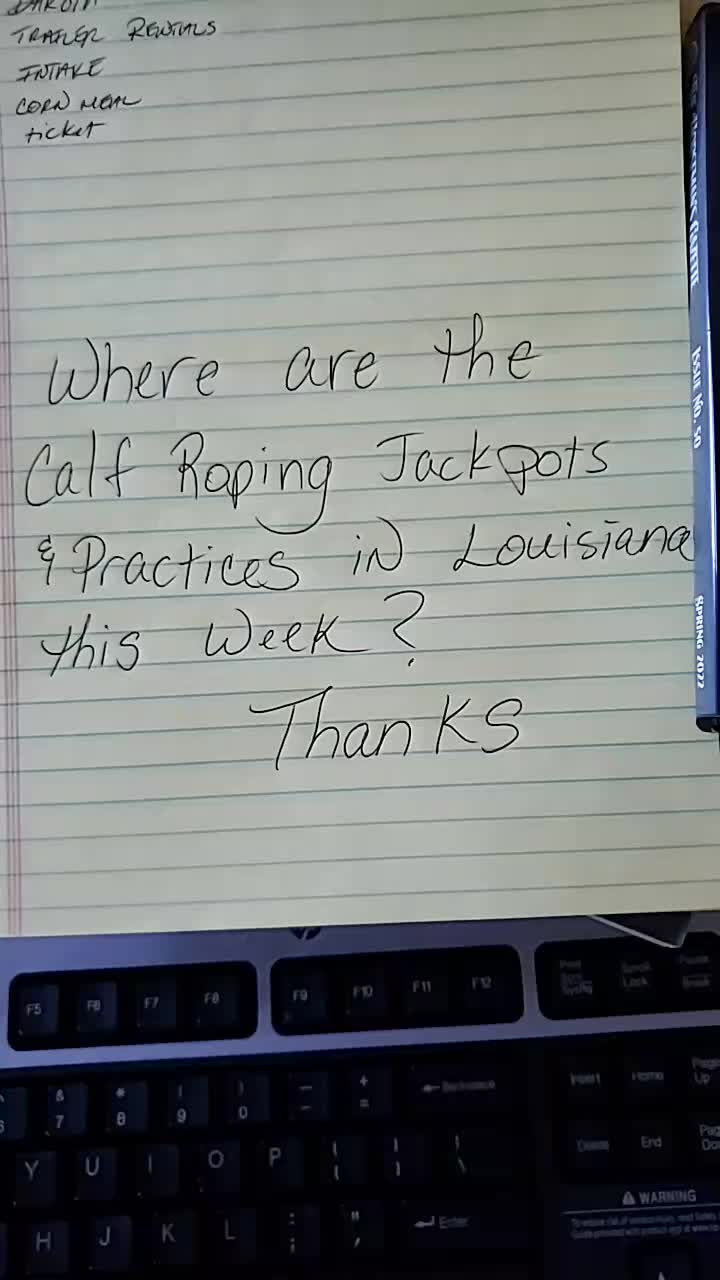 TRAILER RENTALS
INTAKE
CORN MEAL
ticket
Where are the
Calf Roping Jackpots
& Practices in Louisiana
this Week?
Thanks
ISSUE NO. 50
SPRING 2022
F5 F6 F7 F8 F9 F10 F11 F12 Scroll Lock Pause Break
& 7 * 8 ( 9 ) 0 — - + = Backspace Insert Home Page Up
Y U I O P { [ } ] \ Delete End
H J K L : ; " ' Enter
WARNING